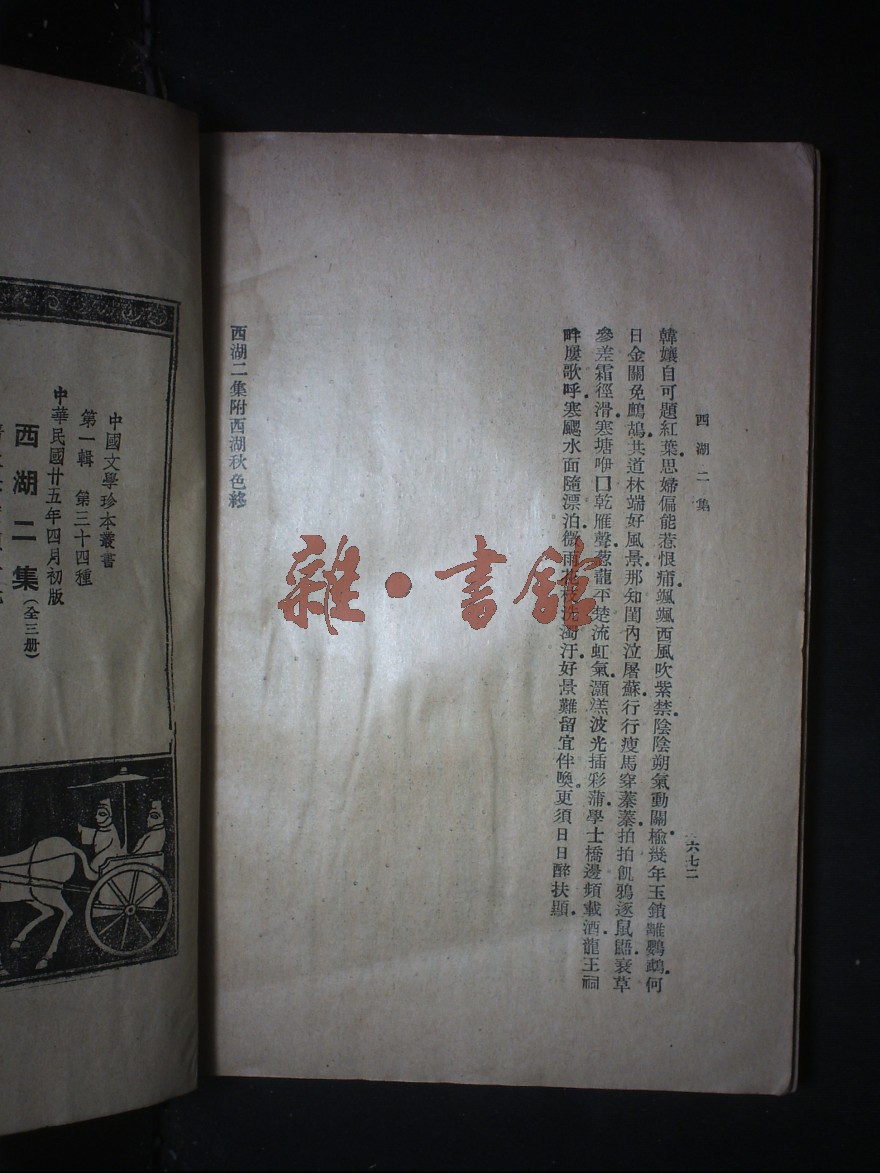 西湖二集
六七二
韓孃自可題紅葉思婦偏能惹恨痛颯颯西風吹紫禁陰陰朔氣動關楡幾年玉鎖雕鸚鵡何
日金關免鷓鴣共道林端好風景那知閨內泣屠蘇行行瘦馬穿蓁蓁拍拍飢鴉逐鼠鼯衰草
參差霜徑滑寒塘咿囗乾雁聲蔥蘢平楚流虹氣灝溔波光插彩蒲學士橋邊頻載酒龍王祠
畔屢歌呼寒颸水面隨漂泊微雨花枝洗濁汙好景難留宜伴喚更須日日醉扶顯
西湖二集附西湖秋色終
中國文學珍本叢書
第一輯 第三十四種
中華民國廿五年四月初版
西湖二集(全三册)
雜·書館